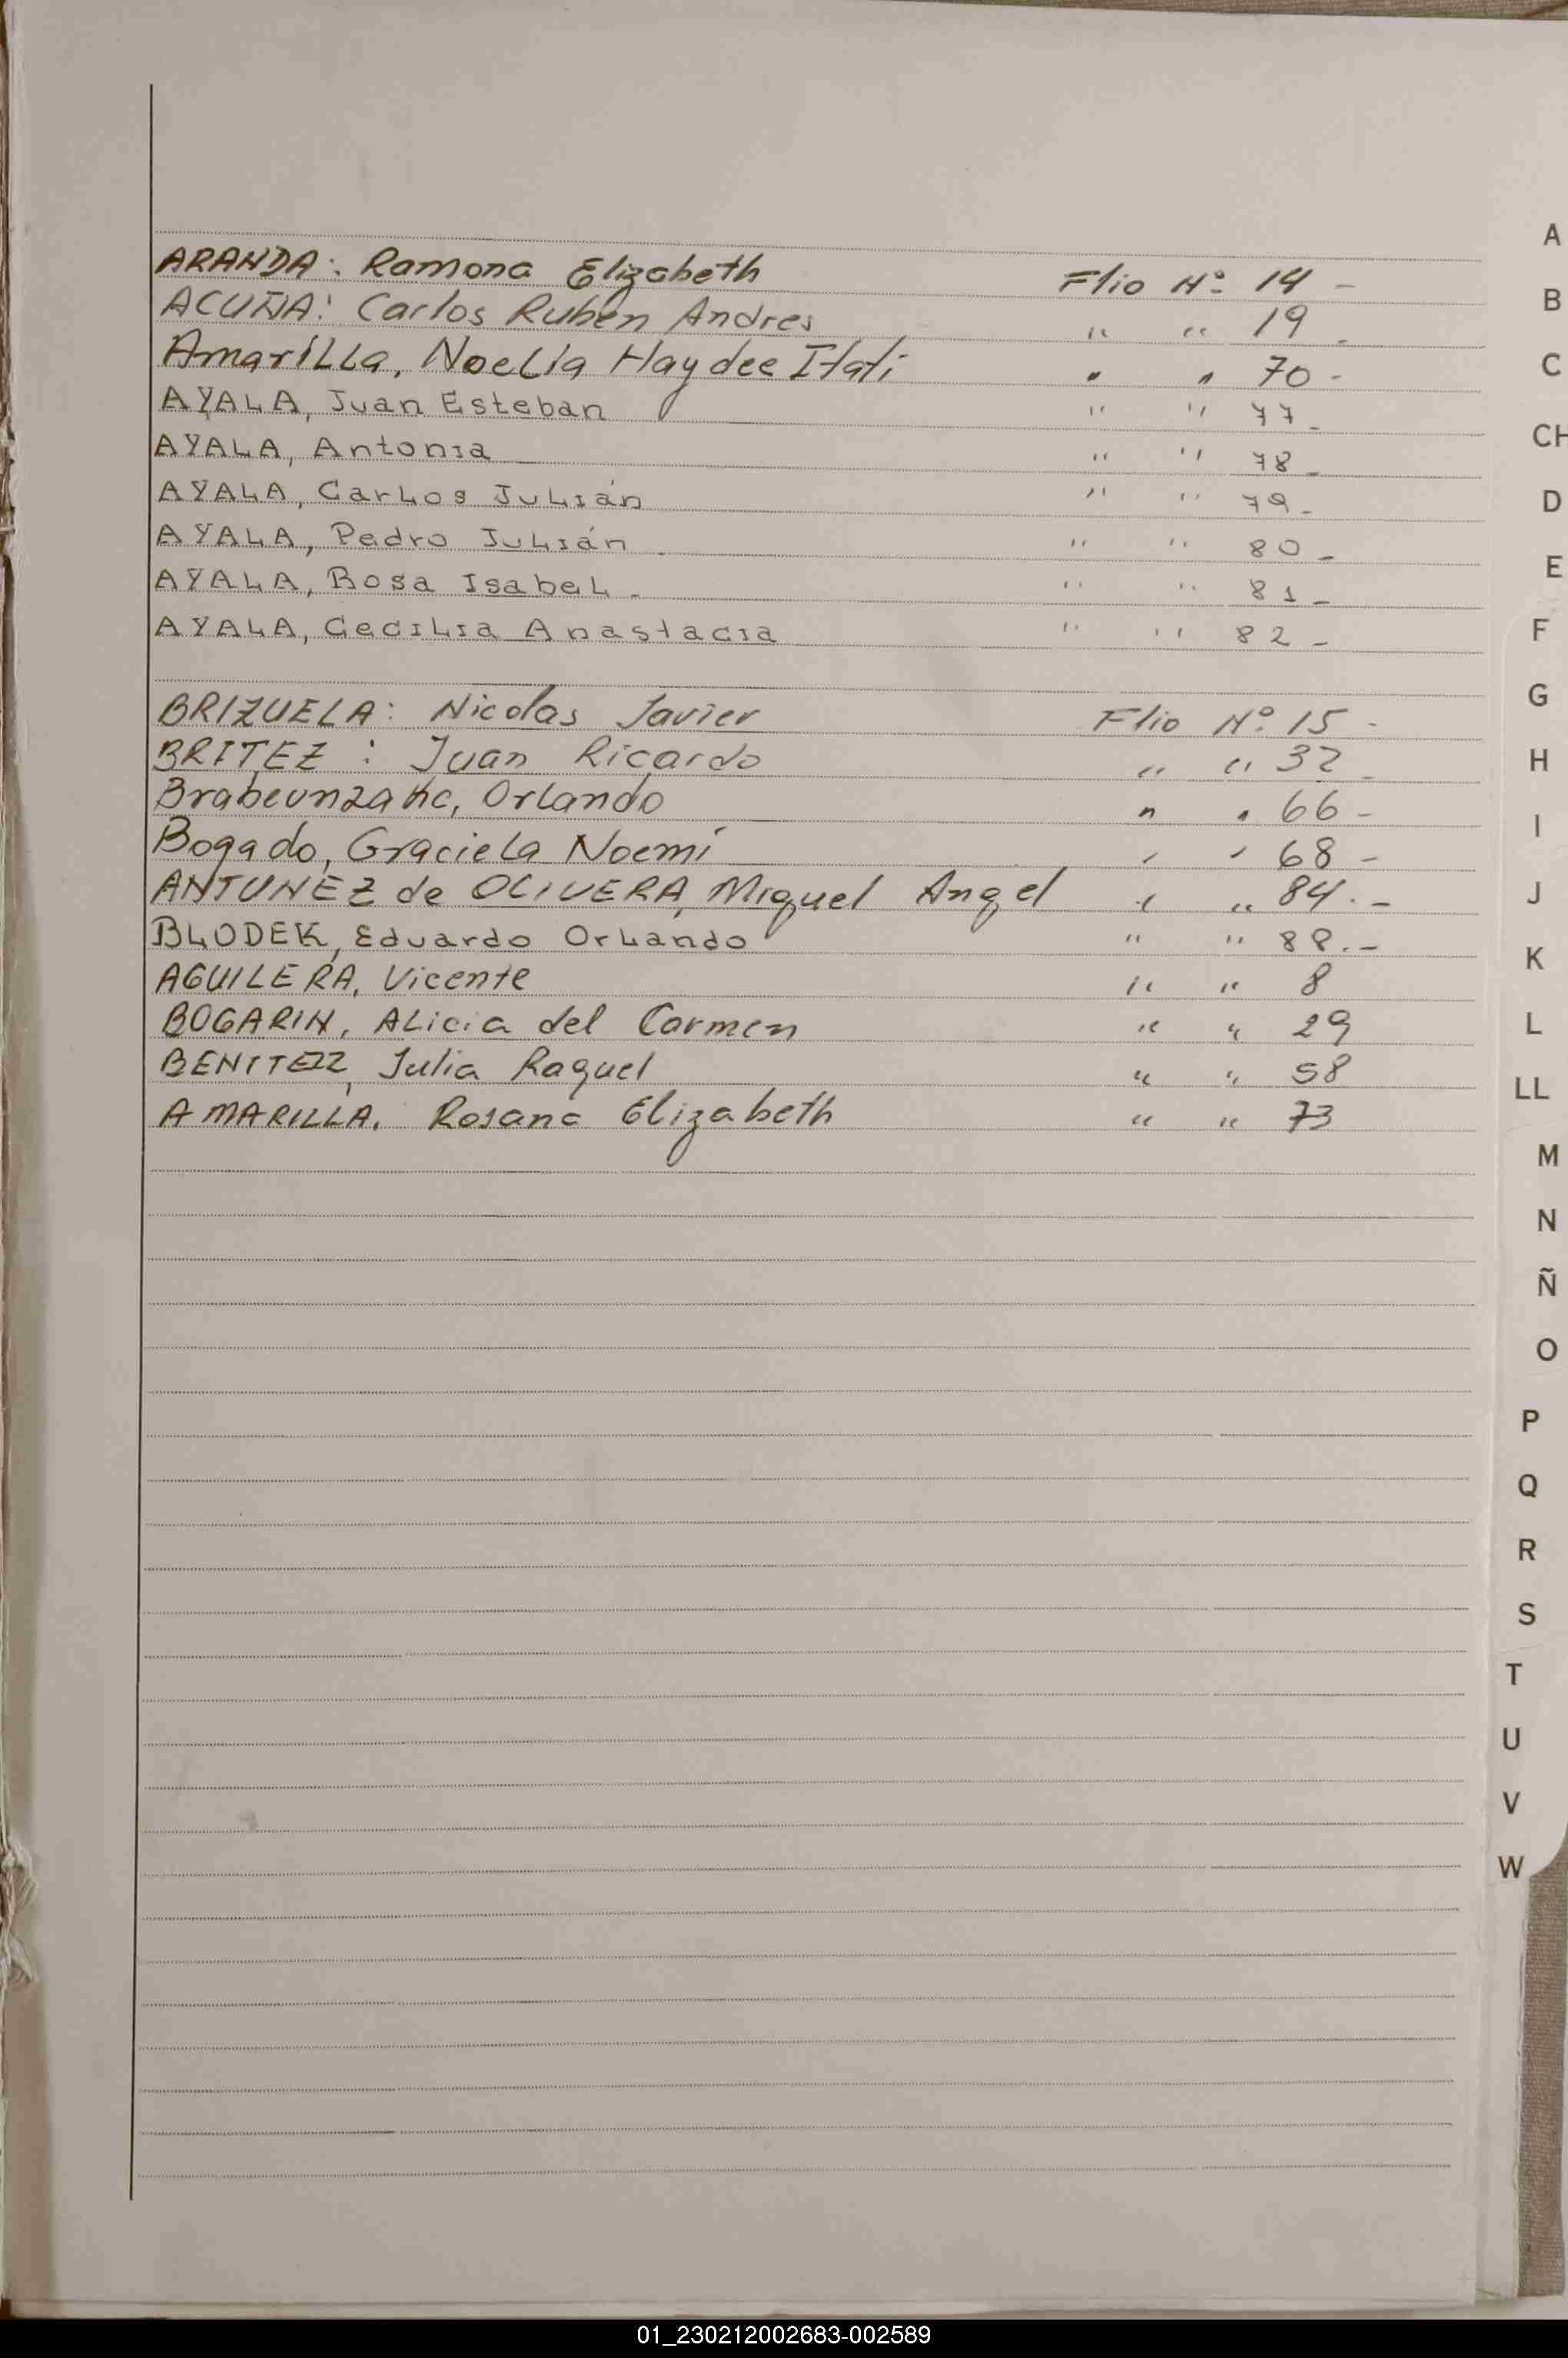 ARANDA: Ramona Elizabeth Flio Nº 14 -
ACUÑA: Carlos Ruben Andres " " 19 -
Amarilla, Noelia Haydee Itati " " 70 -
AYALA, Juan Esteban " " 77 -
AYALA, Antonia " " 78 -
AYALA, Carlos Julián " " 79 -
AYALA, Pedro Julián - " " 80 -
AYALA, Rosa Isabel - " " 81 -
AYALA, Cecilia Anastacia " " 82 -
BRIZUELA: Nicolas Javier Flio Nº 15 -
BRITEZ: Juan Ricardo " " 32 -
Orlando " " 66 -
Bogado, Graciela Noemí " " 68 -
ANTUNEZ de OLIVERA, Miguel Angel " " 84. -
BLODEK, Eduardo Orlando " " 88. -
AGUILERA, Vicente " " 8
BOGARIN, Alicia del Carmen " " 29
Julia Raquel " " 58
AMARILLA, Rosana Elizabeth " " 73
A
B
C
CH
D
E
F
G
H
I
J
K
L
LL
M
N
Ñ
O
P
Q
R
S
T
U
V
W
01_230212002683-002589